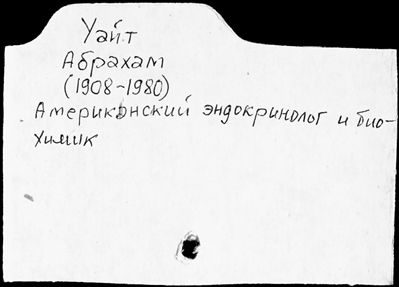 Уайт
Абрахам
(1908-1980)
Американский эндокринолог и био-
химик